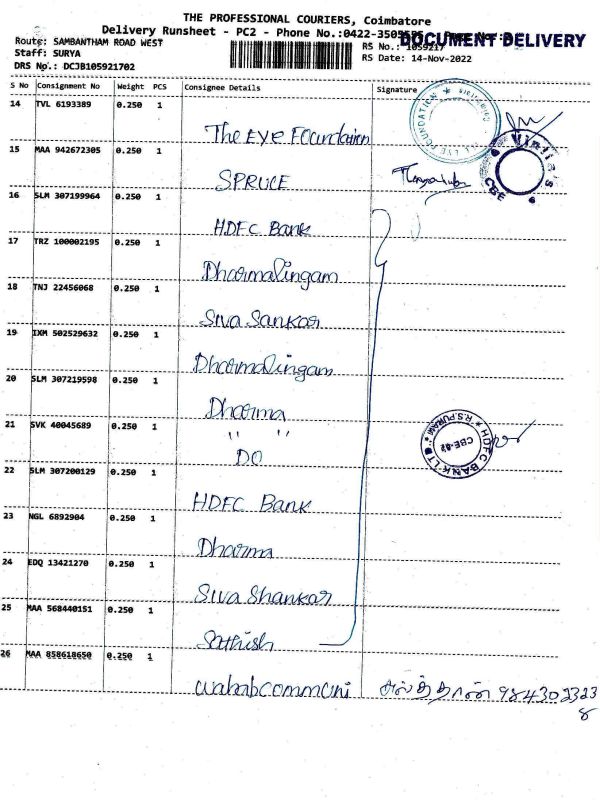 THE PROFESSIONAL COURIERS, Coimbatore
Delivery Runsheet - PC2 - Phone No.:0422-3505
DOCUMENT DELIVERY
Route: SAMBANTHAM ROAD WEST
RS No.: 1059217
Staff: SURYA
RS Date: 14-Nov-2022
DRS No.: DCJB105921702
S No Consignment No Weight PCS Consignee Details Signature
14 TVL 6193389 0.250 1
The EYE Foundation
EYE FOUNDATION
15 MAA 942672305 0.250 1
SPRUCE
CBE
16 SLM 307199964 0.250 1
HDFC Bank
17 TRZ 100002195 0.250 1
Dharmalingam
18 TNJ 22456068 0.250 1
Siva Sankar
19 IXM 502529632 0.250 1
Dharmalingam
20 SLM 307219598 0.250 1
Dharma
21 SVK 40045689 0.250 1
" "
DO
HDFC BANK LTD * R.S.PURAM *
CBE-02
22 SLM 307200129 0.250 1
HDFC Bank
23 NGL 6892904 0.250 1
Dharma
24 EDQ 13421270 0.250 1
Siva Shankar
25 MAA 568440151 0.250 1
Sathish
26 MAA 858618650 0.250 1
wahabcommuni 984302323
8